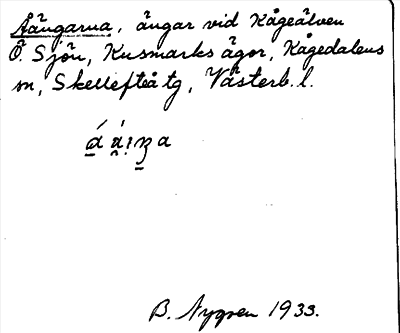 Åängarna, ängar vid Kågeälven
Ö. Sjön, Kusmarks ägor, Kågedalens
sn, Skellefteå tg, Västerb. l.
B. Nygren 1933.